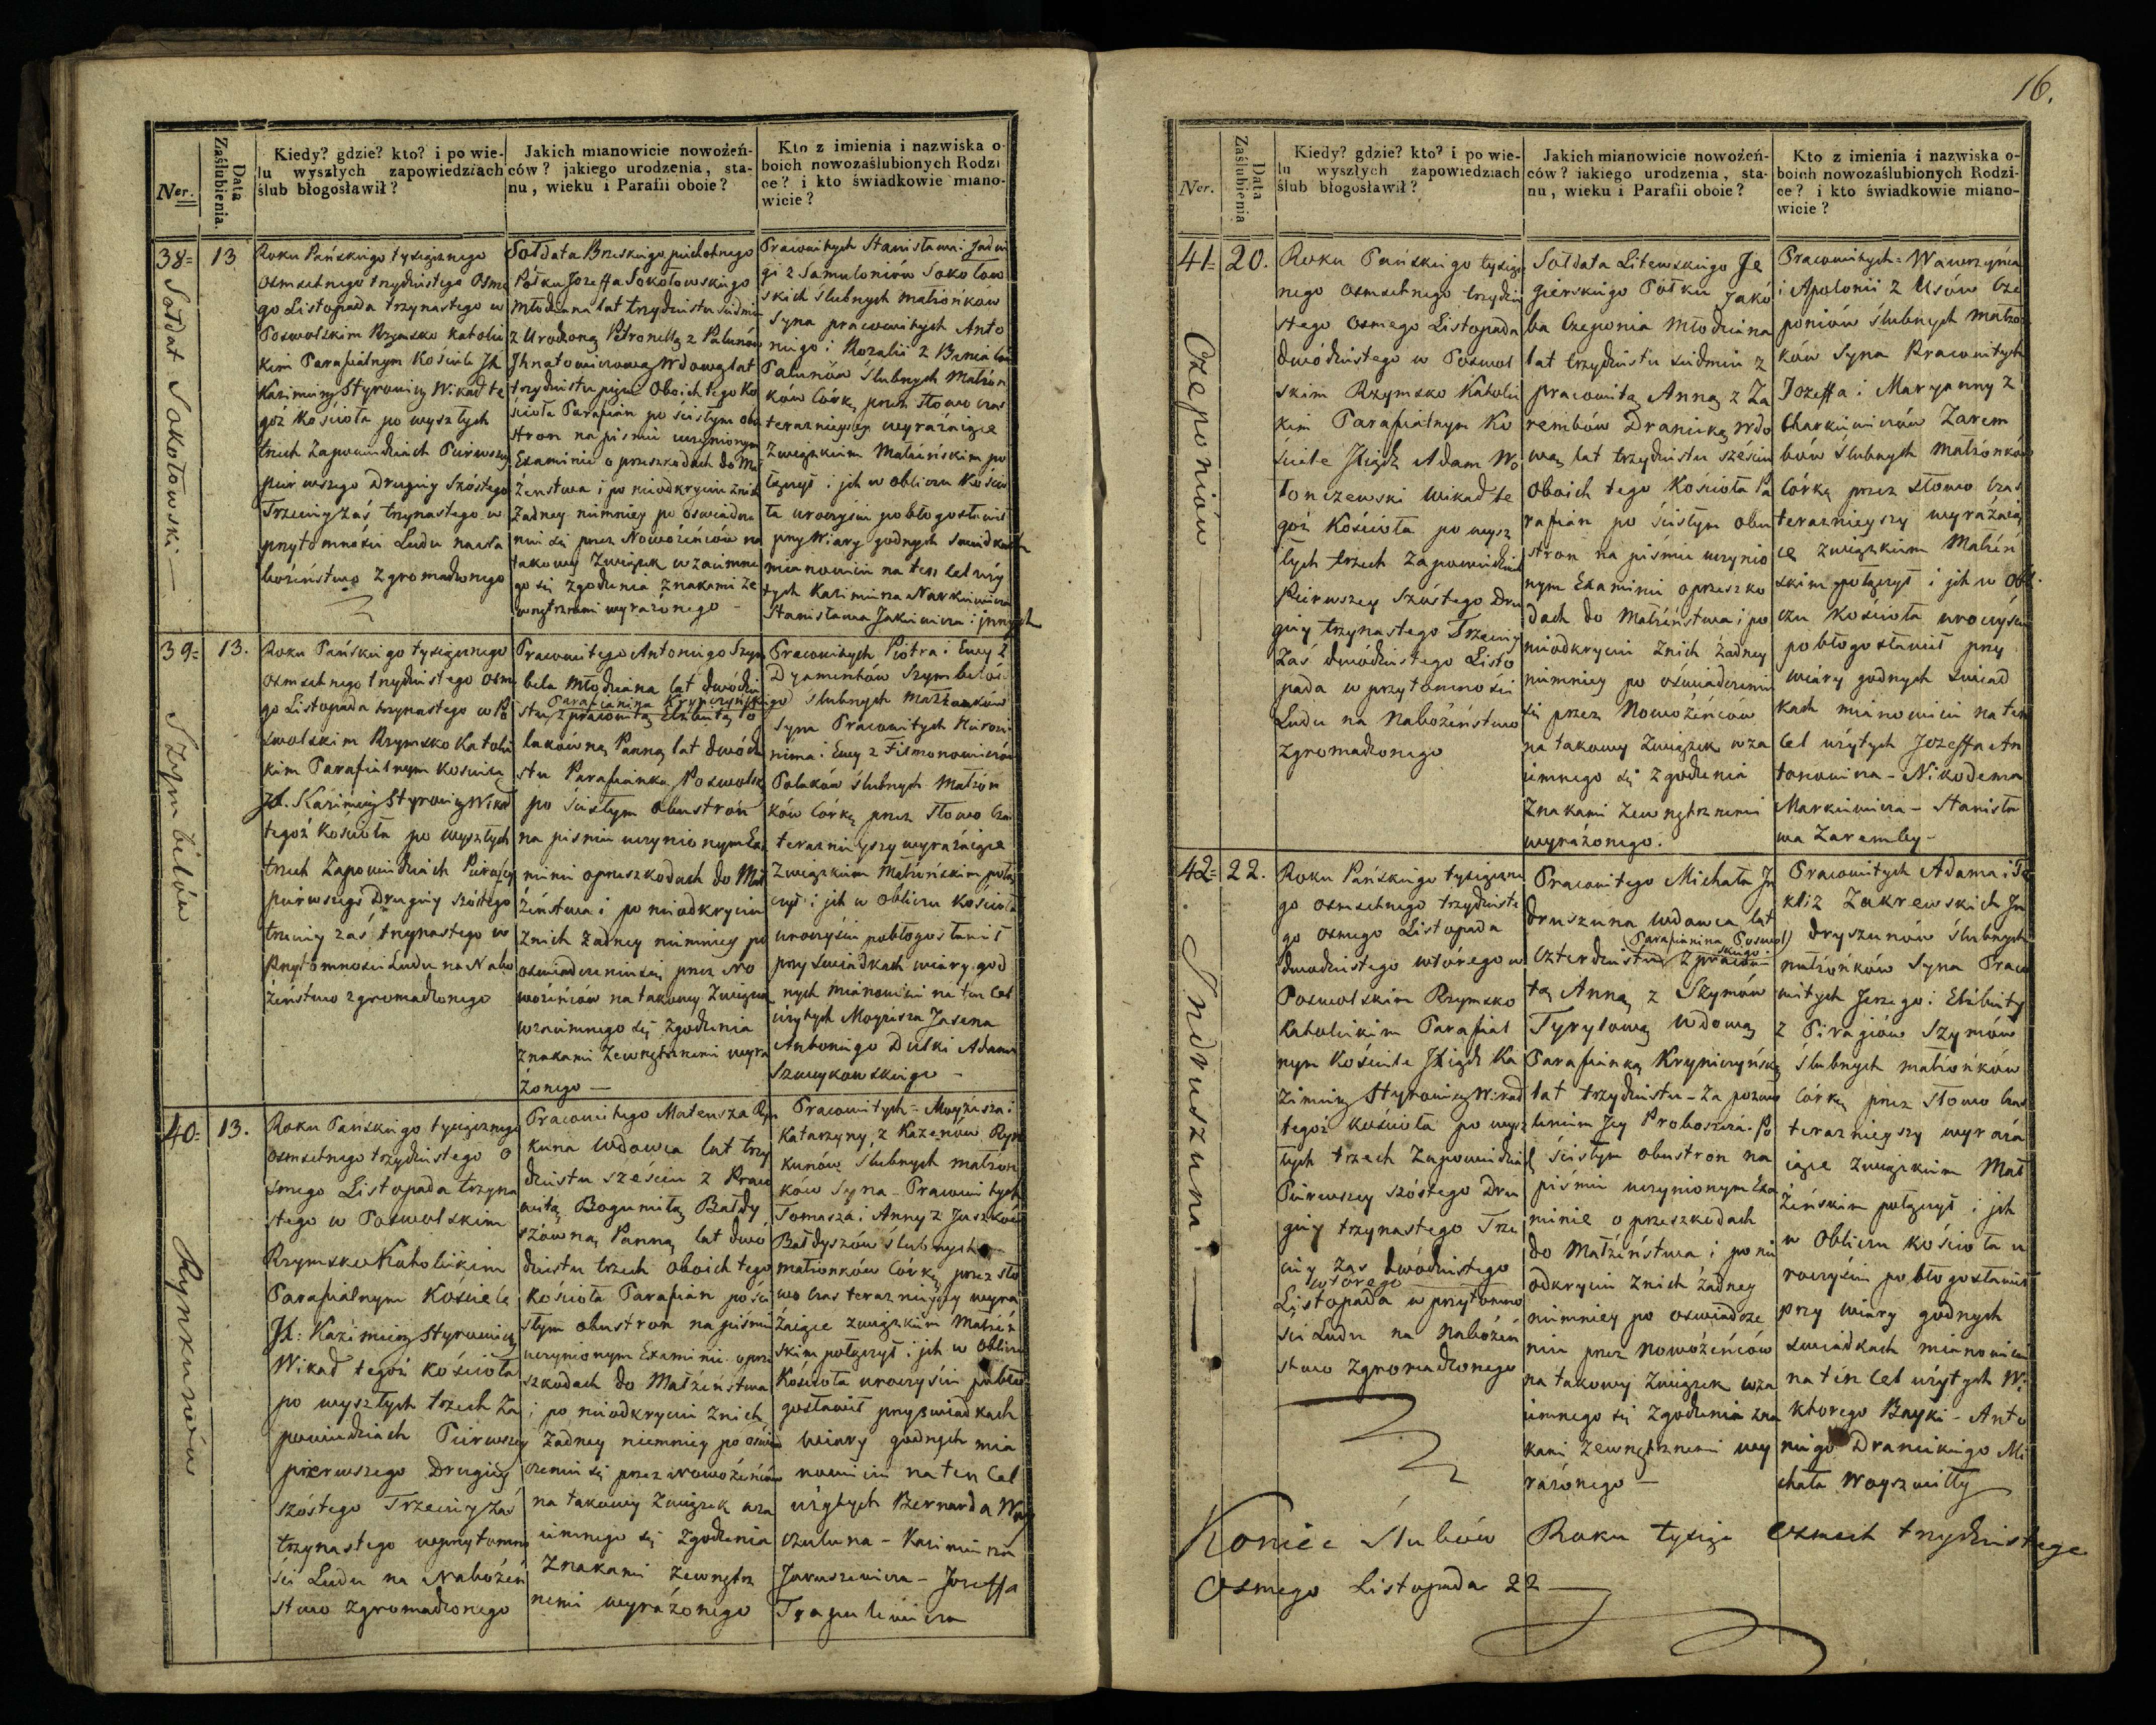 Ner.
Data Zaślubienia.
Kiedy? gdzie? kto? i po wie-
lu wyszłych zapowiedziach
ślub błogosławił?
Jakich mianowicie nowożeń-
ców? jakiego urodzenia, sta-
nu, wieku i Parafii oboie?
Kto z imienia i nazwiska o-
boich nowozaślubionych Rodzi
ce? i kto świadkowie miano-
wicie?
38=
Sołdat: Sokołowski
13
Roku Pańskiego tysięcznego
osmsetnego trzydziestego osme
go Listopada trzynastego w
Poswolskim Rzymsko Katolic
kim Parafialnym Kościele JX
Kazimierz Styrowicz Wikad te
goż Kościoła po wyszłych
trzech Zapowiedziach Pierwszey
pierwszego Drugiey szóstego
Trzeciey zaś trzynastego w
przytomności Ludu na Na
bożeństwo zgromadzonego
Sołdata Brzeskiego piechotnego
Półku Jozeffa Sokołowskiego
Młodziana lat trzydziestu siedmiu
z Urodzoną Petronellą z Palunów
Jhnatowiczową Wdową lat
trzydziestu pięciu Oboich tego Ko
ścioła Parafian po ścisłym obu
stron na pismie uczynionym
Examinie o przeszkodach do Mał
żenstwa i po nieodkryciu znich
żadney niemniey po oswiadcze
niu się przez Nowożeńców na
takowy Związek wzaiemne
go się zgodzenia znakami ze
wnętrznemi wyrażonego
Pracowitych Stanisława i Jadwi
gi z Samuloniów Sokołow
skich ślubnych małżonków
Syna pracowitych Anto
niego i Rozalii z
Palunów Ślubnych Małżon
ków Córkę przez słowo czas
teraznieyszy wyrażaiące
Związkiem Małżeńskim po
łączył i jch w obliczu Kościo
ła uroczyscie pobłogosławił
przy Wiary godnych Swiadkach
mianowicie na ten cel uży
tych Kazimierza Narkiewicza
Stanisława Jakiewicza i jnnych
39=
Szymbelów
13.
Roku Pańskiego tysięcznego
osmsetnego trzydziestego osme
go Listopada trzynastego w Po
swolskim Rzymsko Katolic
kim Parafialnym Kosciele
JX. Kazimierz Styrowicz Wikad
tegoż Kościoła po wyszłych
trzech Zapowiedziach Pierwszey
pierwszego Drugiey szóstego
trzeciey zaś trzynastego w
Przytomności Ludu na Nabo
żeństwo zgromadzonego
Pracowitego Antoniego Szym
bela Młodziana lat dwódzie
Parafianina Krypczyńskiego
stu, z pracowitą Elżbietą Po
laków͏ną Panną lat dwódzie
stu Parafianką Poswolską
po ścisłym obustron
na pismie uczynionym Exa
minie o przeszkodach do Mał
żeństwa i po nieodkryciu
znich żadney niemniey po
oswiadczeniu się przez No
wożeńców na takowy Związek
wzaiemnego się zgodzenia
znakami zewnętrznemi wyra
żonego
Pracowitych Piotra i Ewy z
Dyamentów Szymbelów
ślubnych Małżonków
Syna Pracowitych Hieroni
nima i Ewy z Fismonowiczów
Polaków ślubnych Małżon
ków Córkę przez Słowo Czas
teraznieyszy wyrażaiące
Związkiem Małżeńskim połą
czył i jch w Obliczu Kościoła
uroczyście pobłogosławił
przy Swiadkach wiary god
nych mianowicie na ten Cel
użytych Moyzesza Jasena
Antoniego Dulki Adama
Szweykowskiego
40=
Rynkunów
13.
Roku Pańskiego tysięcznego
osmsetnego trzydziestego o
smego Listopada trzyna
stego w Poswolskim
Rzymsko Katolickim
Parafialnym Kościele
JX: Kazimierz Styrowicz
Wikad tegoż kościoła
po wyszłych trzech Za
powiedziach Pierwszey
pierwszego Drugiey
szóstego Trzeciey zaś
trzynastego wprzytomno
ści Ludu na Nabożeń
stwo zgromadzonego
Pracowitego Mateusza Ryn
kuna Wdowca lat trzy
dziestu sześciu z Praco
witą Bogumiłą Bałdy
szówną Panną lat dwó
dziestu trzech oboich tego
kościoła Parafian po ści
słym obustron na piśmie
uczynionym Examinie o prze
szkodach do Małżeństwa
i po nieodkryciu znich
żadney niemniey po oswiad
czeniu się przez nowożeńców
na takowy Związek wza
iemnego się zgodzenia
znakami zewnętrz
nemi wyrażonego
Pracowitych Moyżesza i
Katarzyny z Kazenów Ryn
kunów ślubnych małżon
ków Syna Pracowitych
Tomasza i Anny z Juszków
Bałdyszów ślubnych
małżonków Córkę przez sło
wo czas teraznieyszy wyra
żaiące związkiem Małżeń
skim połączył i jch w Obliczu
Kościoła uroczyście pobło
gosławił przy swiadkach
wiary godnych mia
nowicie na ten Cel
użytych Bernarda Woy
czuluna - Kazimierza
Januszewicza - Jozeffa
Trapulewicza
16.
Ner.
Data Zaślubienia
Kiedy? gdzie? kto? i po wie-
lu wyszłych zapowiedziach
ślub błogosławił?
Jakich mianowicie nowożeń-
ców? iakiego urodzenia, sta-
nu, wieku i Parafii oboie?
Kto z imienia i nazwiska o-
boich nowozaślubionych Rodzi-
ce? i kto świadkowie miano-
wicie?
41=
Czeponiów
20.
Roku Pańskiego tysięcz
nego osmsetnego trzydzie
stego osmego Listopada
dwódziestego w Poswol
skim Rzymsko Katolic
kim Parafialnym Ko
ściele JXiądz Adam Wo
łonczewski wikad te
goż Kościoła po wysz
łych trzech zapowiedziach
Pierwszey szóstego Dru
giey trzynastego Trzeciey
Zaś dwódziestego Listo
pada w przytomności
Ludu na Nabożeństwo
zgromadzonego
Sołdata Litewskiego Je
gierskiego Półku Jakó
ba Czeponia Młodziana
lat trzydziestu siedmiu z
pracowitą Anną z Za
rembów Dranicką wdo
wą lat trzydziestu sześciu
oboich tego Kościoła Pa
rafian po ścisłym obu
stron na piśmie uczynio
nym Examinie o przeszko
dach do Małżeństwa i po
nieodkryciu znich żadney
niemniey po oświadczeniu
się przez Nowożeńców
na takowy związek wza
iemnego się zgodzenia
znakami zewnętrznemi
wyrażonego.
Pracowitych Wawrzyńca
i Apolonii z Usów Cze
poniów ślubnych Małżon
ków Syna Pracowitych
Jozeffa i Maryanny z
Charkiewiczów Zarem
bów ślubnych Małżonków
Córkę przez słowo czas
teraznieyszy wyrażaią
ce związkiem Małżeń
skim połączył i jch w obli
czu Kościoła uroczyście
pobłogosławił przy
wiary godnych swiad
kach mianowicie na ten
cel użytych Jozeffa An
tonowicza - Nikodema
Markiewicza - Stanisła
wa Zaremby
42=
Indruszuna
22.
Roku Pańskiego tysięczne
go osmsetnego trzydzieste
go osmego Listopada
dwudziestego wtórego w
Poswolskim Rzymsko
Katolickim Parafial
nym Kościele JXiądz Ka
zimierz Styrowicz Wikad
tegoż kościoła po wysz
łych trzech Zapowiedziach
Pierwszey szóstego Dru
giey trzynastego Trze
ciey zas dwódziestego
wtórego
Listopada w przytomno
ści Ludu na Nabożeń
stwo zgromadzonego
Pracowitego Michała Jn
druszuna wdowca lat
(Parafianina Poswol
skiego)
czterdziestu z pracowi
tą Anną z Skymów
Tyrylową wdową
Parafianką Krypiczyńską
lat trzydziestu - za pozwo
leniem Jey Proboszcza. Po
ścisłym obustron na
piśmie uczynionym Exa
minie o przeszkodach
do Małżeństwa i po nie
odkryciu znich żadney
niemniey po oswiadcze
niu przez nowożeńców
na takowy związek wza
iemnego się zgodzenia zna
kami zewnętrznemi wy
rażonego
Pracowitych Adama i Te
kli z Zakrewskich Jn
dryszunów Ślubnych
małżonków Syna Praco
witych Jerzego i Elżbiety
z Piragiów Szymów
Ślubnych małżonków
Córkę przez słowo czas
teraznieyszy wyraża
iące związkiem Mał
żeńskim połączył i jch
w Obliczu kościoła u
roczyście pobłogosławił
przy wiary godnych
swiadkach mianowicie
na ten cel użytych Wi
ktorego Bayki - Anto
niego Dranickiego Mi
chała Woyszwiłły
Koniec Ślubów Roku tysiąc osmset trzydziestego
osmego Listopada 22